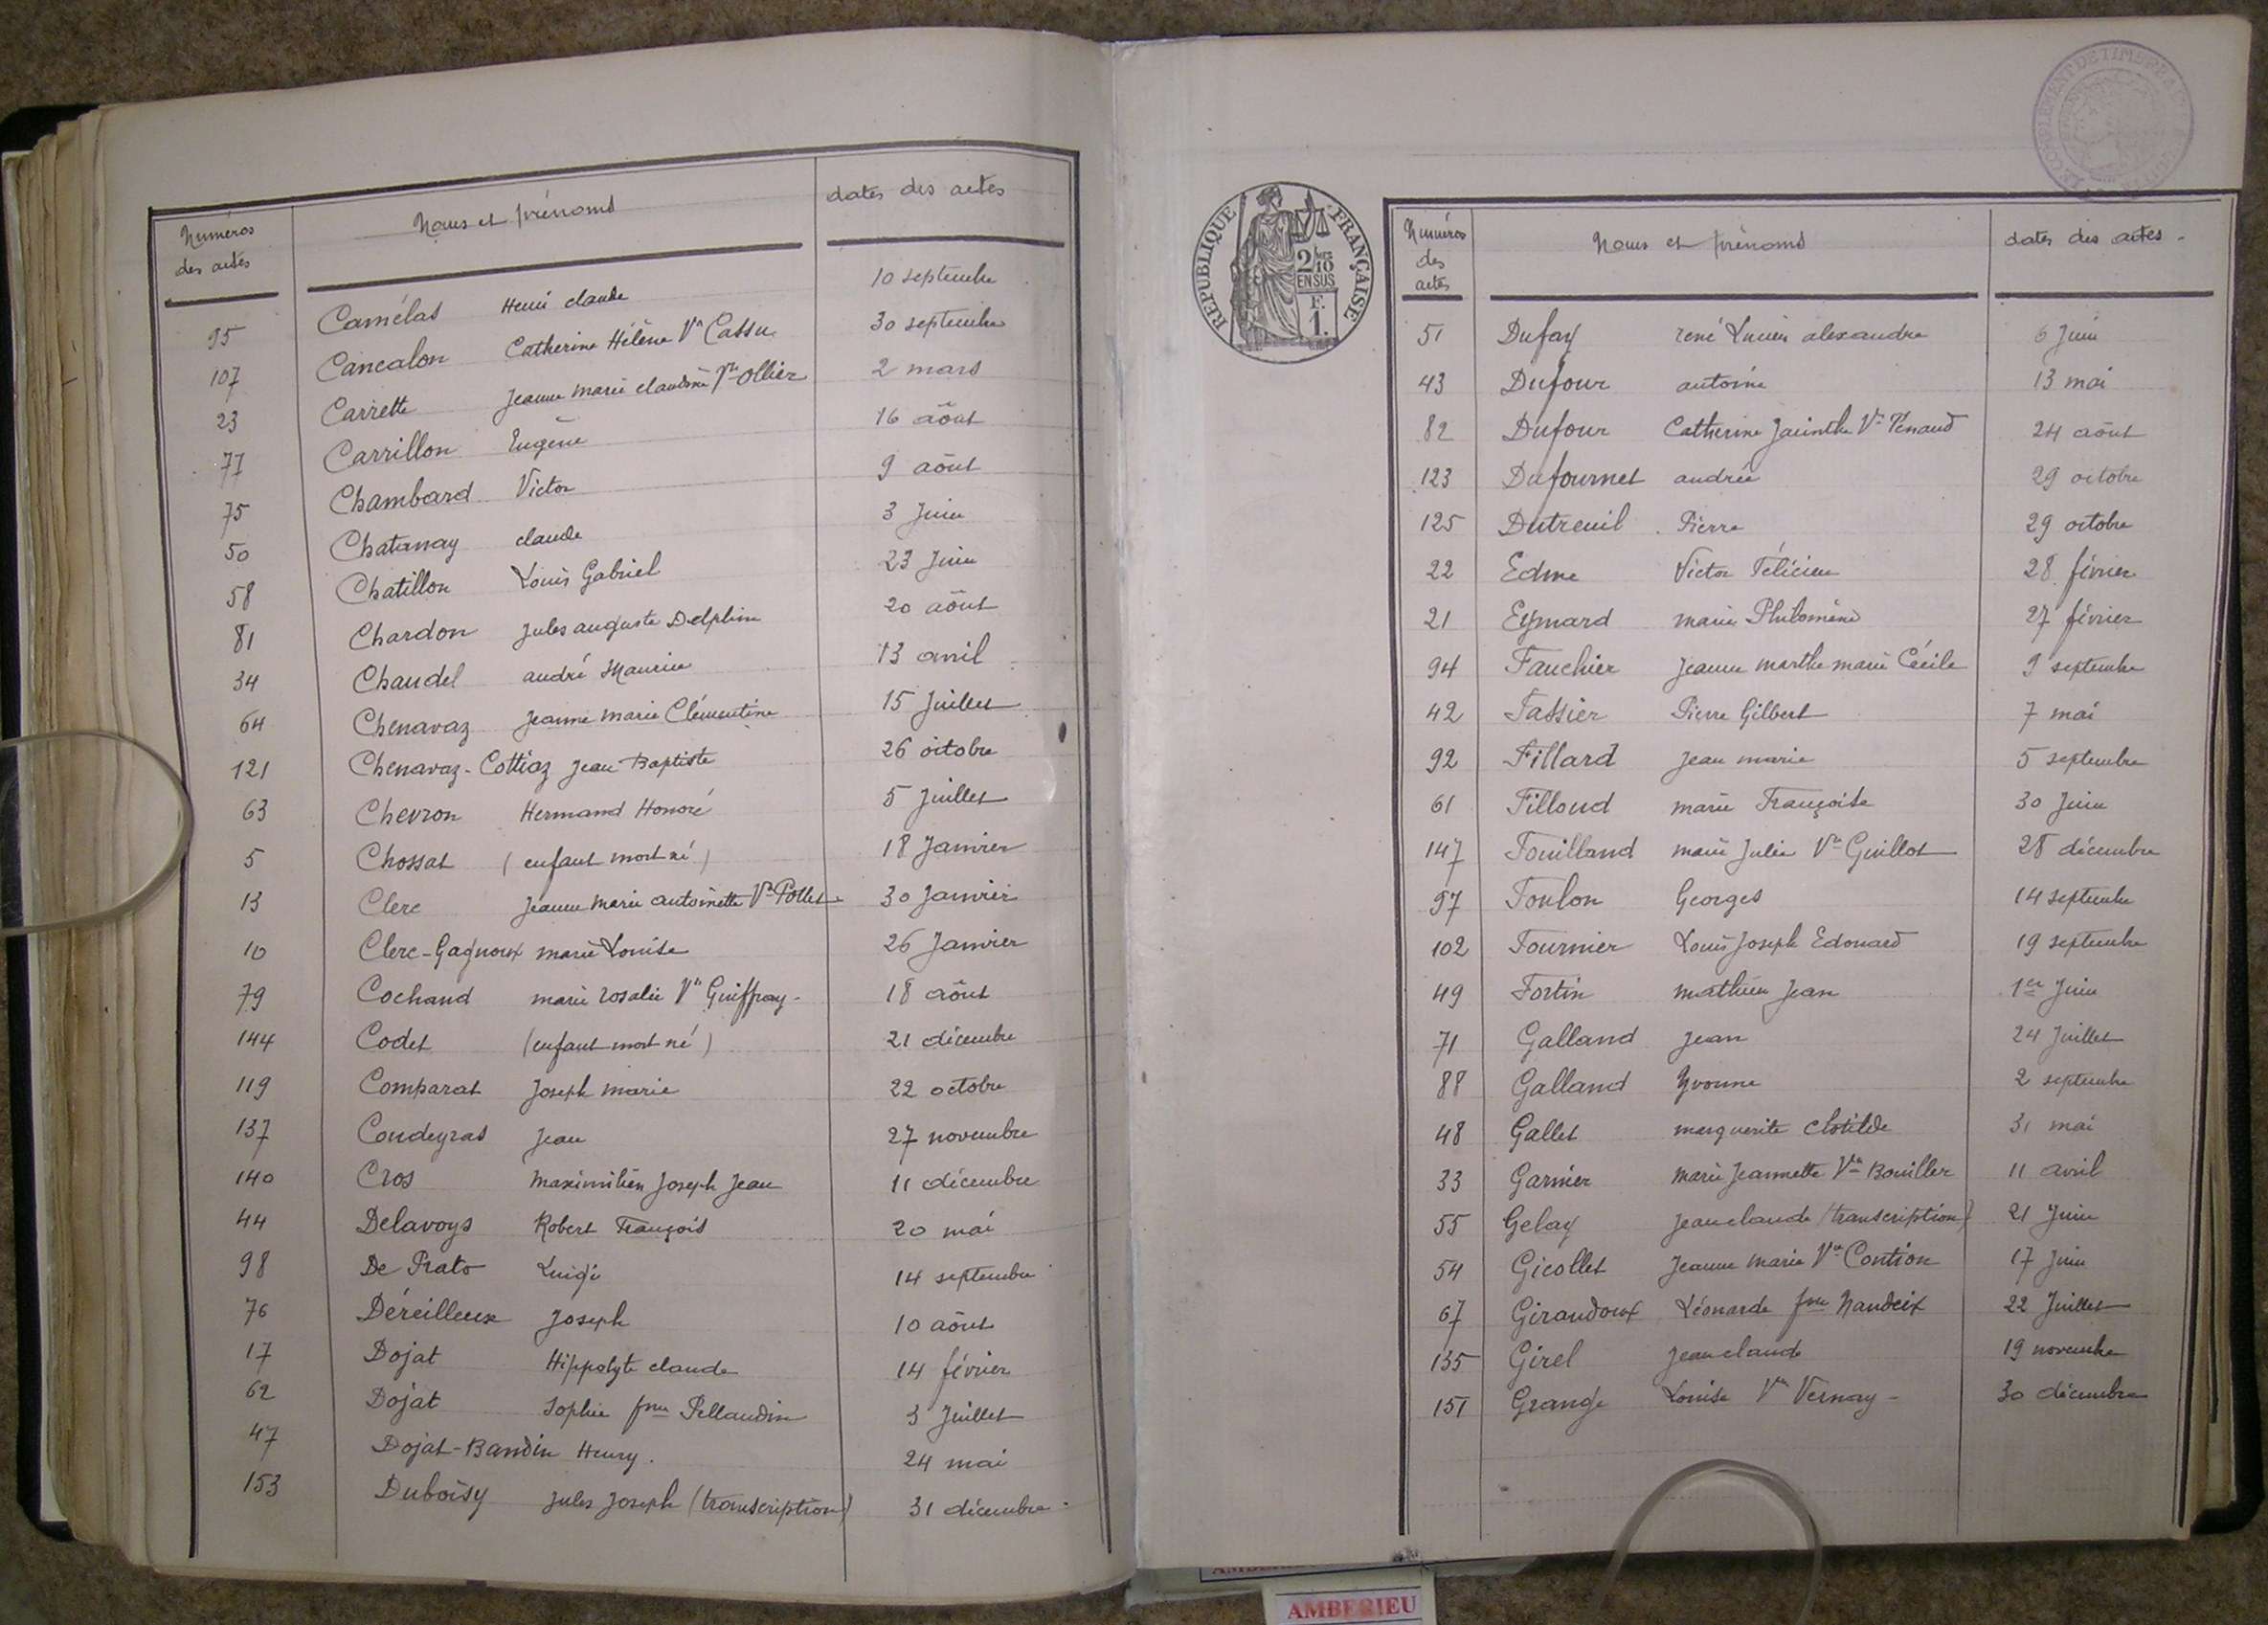 Numéros des actes | Noms et prénoms | dates des actes
95 Camélas Henri claude 10 septembre
107 Cancalon Catherine Hélène Ve Cassu 30 septembre
23 Carrette Jeanne marie claudine Ve Ollier 2 mars
77 Carrillon Eugène 16 aôut
75 Chambard Victor 9 aôut
50 Chatanay claude 3 Juin
58 Chatillon Louis Gabriel 23 Juin
81 Chardon Jules auguste Delphin 20 aôut
34 Chaudel andré Maurice 13 avril
64 Chenavaz Jeanne marie Clémentine 15 Juillet
121 Chenavaz-Cottiaz Jean Baptiste 26 octobre
63 Chevron Hermand Honoré 5 Juillet
5 Chossat (enfant mort né) 18 Janvier
13 Clerc Jeanne marie antoinette Ve Pollet 30 Janvier
10 Clerc-Gagnoux marie Louise 26 Janvier
79 Cochand marie rosalie Ve Guiffray- 18 aôut
144 Codet (enfant mort né) 21 décembre
119 Comparat Joseph marie 22 octobre
137 Coudeyras Jean 27 novembre
140 Cros Maximilien Joseph Jean 11 décembre
44 Delavoys Robert François 20 mai
98 De Prato Luigi 14 septembre
76 Déreilleux Joseph 10 aôut
17 Dojat Hippolyte claude 14 février
62 Dojat Sophie fme Pellaudin 3 Juillet
47 Dojat-Bandin Henry. 24 mai
153 Duboisy Jules Joseph (transcription) 31 décembre
RÉPUBLIQUE FRANÇAISE
2/10
EN SUS
F.
1.
Numéros des actes | Noms et prénoms | dates des actes
51 Dufay rené Lucien alexandre 6 Juin
43 Dufour antoine 13 mai
82 Dufour Catherine Jacinthe Ve Tenaud 24 aôut
123 Dufournet andrée 29 octobre
125 Dutreuil Pierre 29 octobre
22 Edme Victor Félicien 28 février
21 Eymard marie Philomène 27 février
94 Fauchier Jeanne marthe marie Cécile 9 septembre
42 Fassier Pierre Gilbert 7 mai
92 Fillard Jean marie 5 septembre
61 Filloud marie Françoise 30 Juin
147 Fouilland marie Julie Ve Guillot 28 décembre
97 Foulon Georges 14 septembre
102 Fournier Louis Joseph Edouard 19 septembre
49 Fortin mathieu Jean 1er Juin
71 Galland Jean 24 Juillet
88 Galland Yvonne 2 septembre
48 Gallet marguerite Clotilde 31 mai
33 Garnier Marie Jeannette Ve Bouiller 11 avril
55 Gelay Jean claude (transcription) 21 Juin
54 Gicollet Jeanne Marie Ve Contion 17 Juin
67 Giraudoux Léonarde fme Naudeix 22 Juillet
135 Girel Jean claude 19 novembre
151 Grange Louise Ve Vernay- 30 décembre
AMBERIEU